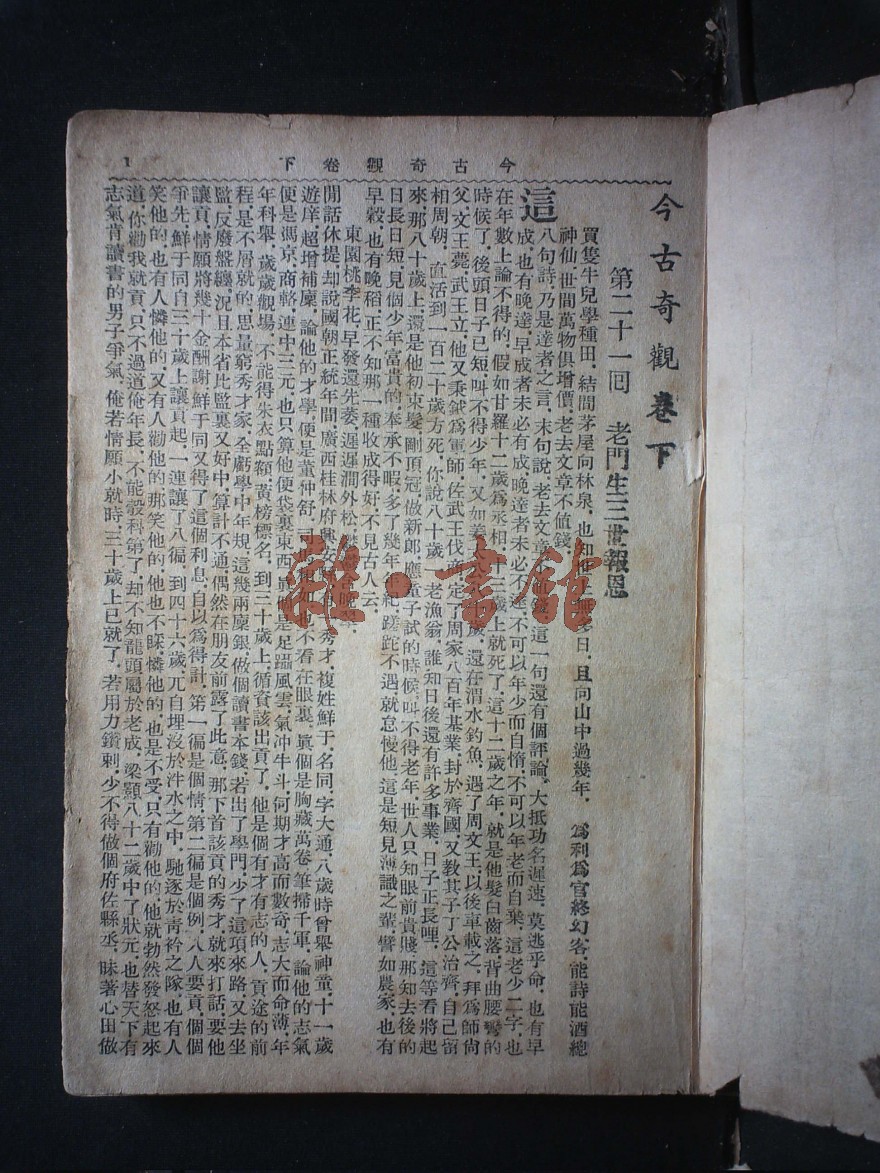 今古奇觀卷下
1
今古奇觀 卷下
第二十一回 老門生三世報恩
買隻牛兒學種田．結間茅屋向林泉．也知世上無多日．且向山中過幾年． 爲利爲官終幻客．能詩能酒總
神仙．世間萬物俱增價．老去文章不值錢．
這八句詩．乃是達者之言．末句說．老去文章不值錢．這一句還有個評論．大抵功名遲速．莫逃乎命．也有早
成．也有晚達．早成者未必有成．晚達者未必不達．不可以年少而自惰．不可以年老而自棄．這老少二字．也
在年數上論不得的．假如甘羅十二歲爲丞相．十三歲上就死了．這十二歲之年．就是他髮白齒落．背曲腰彎的
時候了．後頭日子已短．叫不得少年．又如姜太公八十歲．還在渭水釣魚．遇了周文王．以後車載之．拜爲師尚
父．文王薨．武王立．他又秉鉞爲軍師．佐武王伐商．定了周家八百年基業．封於齊國．又教其子丁公治齊．自己留
相周朝．直活到一百二十歲方死．你說八十歲一老漁翁．誰知日後還有許多事業．日子正長哩．這等看將起
來．那八十歲上．還是他初束髮．剛頂冠．做新郎．應童子試的時候．叫不得老年．世人只知眼前貴賤．那知去後的
日長日短．見個少年富貴的．奉承不暇．多了幾年年紀．蹉跎不遇．就怠慢他．這是短見薄識之輩．譬如農家．也有
早穀．也有晚稻．正不知那一種收成得好．不見古人云．
東園桃李花．早發還先萎．遲遲澗外松．鬱鬱含晚翠．
閒話休提．却說國朝正統年間．廣西桂林府興安縣有一秀才．複姓鮮于．名同．字大通．八歲時曾舉神童．十一歲
遊庠．超增補廩．論他的才學．便是董仲舒．司馬相如也不看在眼裏．眞個是胸藏萬卷．筆掃千軍．論他的志氣．
便是馮京．商輅．連中三元．也只算他便袋裏東西．眞個是足躡風雲．氣冲牛斗．何期才高而數奇．志大而命薄．年
年科舉．歲歲觀場．不能得朱衣點額．黃榜標名．到三十歲上．循資該出貢了．他是個有才有志的人．貢途的前
程．是不屑就的．思量窮秀才家．全虧學中年規這幾兩廩銀．做個讀書本錢．若出了學門．少了這項來路．又去坐
監．反廢盤纏．況且本省比監裏又好中．算計不通．偶然在朋友前露了此意．那下首該貢的秀才．就來打話要他
讓貢．情願將幾十金酬謝．鮮于同又得了這個利息．自以爲得計．第一徧是個情．第二徧是個例．人人要貢．個個
爭先．鮮于同自三十歲上讓貢起．一連讓了八徧．到四十六歲．兀自埋沒於泮水之中．馳逐於青衿之隊．也有人
笑他的．也有人憐他的．又有人勸他的．那笑他的．他也不睬．憐他的．也是不受．只有勸他的．他就勃然發怒起來
道．你勸我就貢．只不過道俺年長．不能彀科第了．却不知龍頭屬於老成．梁顥八十二歲中了狀元．也替天下有
志氣肯讀書的男子爭氣．俺若情願小就時．三十歲上已就了．若用力鑽刺．少不得做個府佐縣丞．昧著心田做
雜·書館